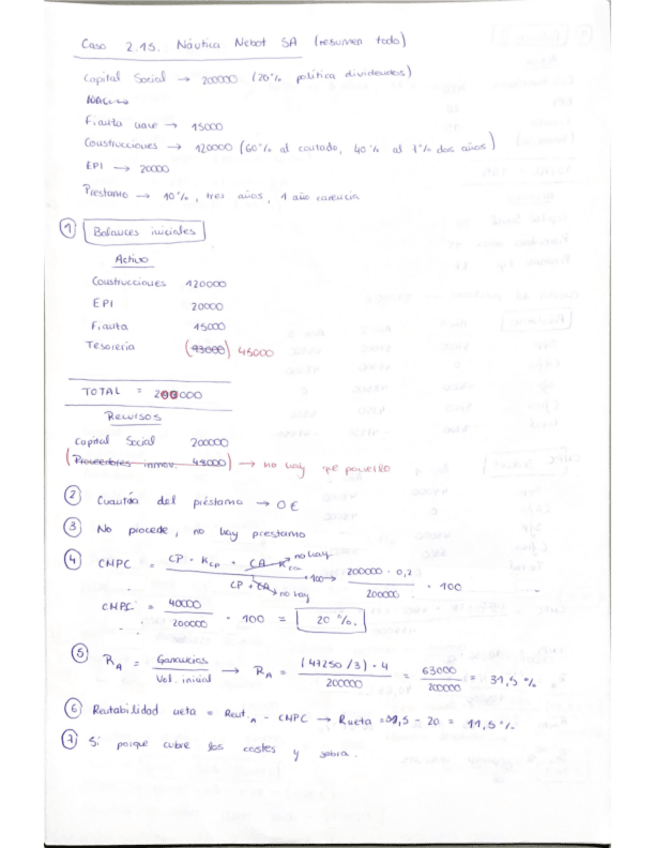 Caso 2.15. Náutica Nebot SA (resumen todo)
Capital Social → 200000 (20% política dividendos)
Fianza nave → 15000
Construcciones → 120000 (60% al contado, 40% al 1% dos años)
EPI → 20000
Prestamo → 10%, tres años, 1 año carencia
① Balances iniciales
Activo
Construcciones 120000
EPI 20000
Fianza 15000
Tesorería (93000) 45000
TOTAL = 200000
Recursos
Capital Social 200000
(Proveedores inmov. 48000) → no hay que ponerlo
② Cuantía del préstamo → 0 €
③ No procede, no hay prestamo
④ CMPC = CP · Kcp + CA · Kca → no hay
CP + CA → no hay · 100 → 200000 · 0,2 / 200000 · 100
CMPC = 40000 / 200000 · 100 = 20 %.
⑤ RA = Ganancias / Vol. inicial → RA = (47250 / 3) · 4 / 200000 = 63000 / 200000 = 31,5 %
⑥ Rentabilidad neta = Rent.A - CMPC → Rneta = 31,5 - 20 = 11,5 %
⑦ Sí porque cubre los costes y sobra.